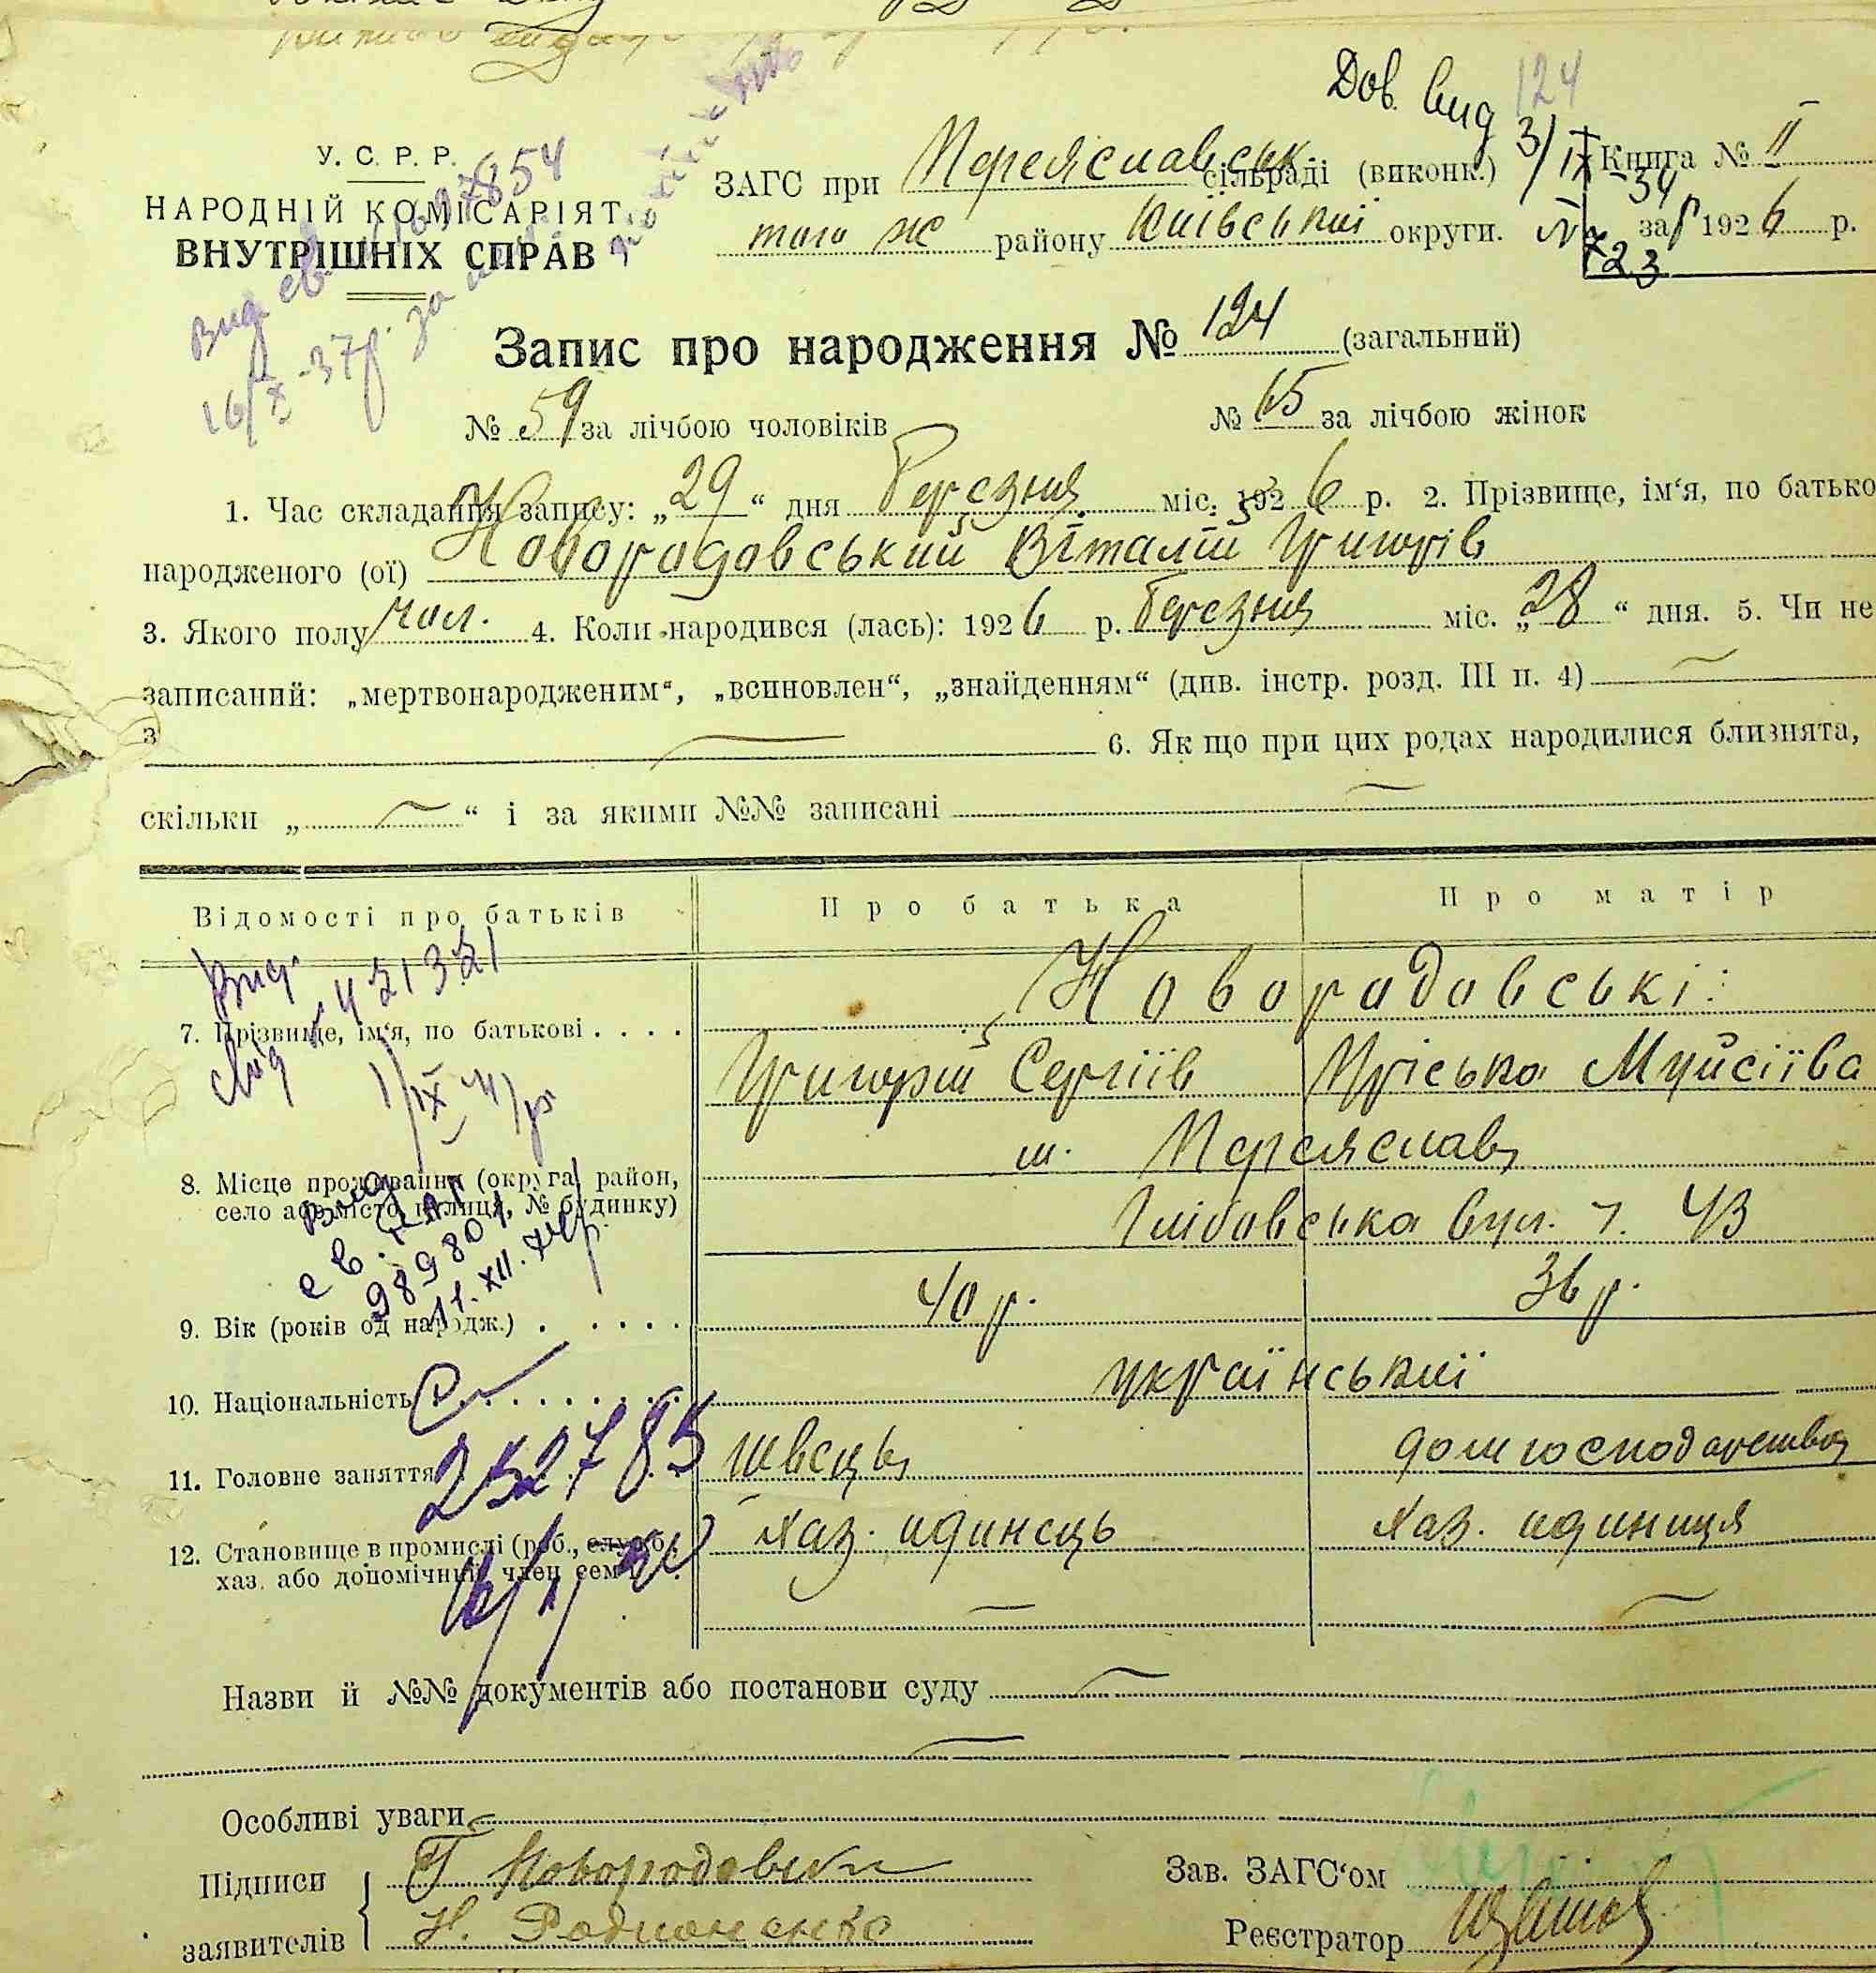 Дов. вид 124
У. С. Р. Р.
НАРОДНІЙ КОМІСАРІЯТ
ВНУТРІШНІХ СПРАВ
ЗАГС при Переяславськ. сільраді (виконк.)
того ж району Київської округи.
Книга № II
за 1926 р.
Запис про народження № 124 (загальний)
№ 59 за лічбою чоловіків № 65 за лічбою жінок
1. Час складання запису: „29“ дня Березня міс. 1926 р. 2. Прізвище, ім‘я, по батько
народженого (ої) Новорадовський Віталій Григорів
3. Якого полу чол. 4. Коли народився (лась): 1926 р. Березня міс. „28“ дня. 5. Чи не
записаний: „мертвонародженим“, „всиновлен“, „знайденням“ (див. інстр. розд. III п. 4)
з
6. Як що при цих родах народилися близнята,
скільки „ “ і за якими №№ записані
Відомості про батьків Про батька Про матір
Новорадовські:
7. Прізвище, ім‘я, по батькові Григорій Сергіїв Мойсіїва
8. Місце проживання (округа, район,
село або місто, вулиця, № будинку)
м. Переяслав
вул. ч. 43
9. Вік (років од народж.) 40 р. 36 р.
10. Національність український
11. Головне заняття швець домгосподарство
12. Становище в промислі (роб., служб.,
хаз. або допомічний член сем
хаз. одинець хаз. одиниця
Вид.
421321
989801
11.XII.
252785
Назви й №№ документів або постанови суду
Особливі уваги
Підписи
заявителів
Г Новородовски
Н. Родионенко
Зав. ЗАГС‘ом
Реєстратор